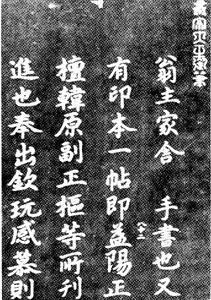 翁主家舍　手書也又
有印本一帖即益陽正
檀韓原副正樞等所刊
進也奉出欽玩感慕則